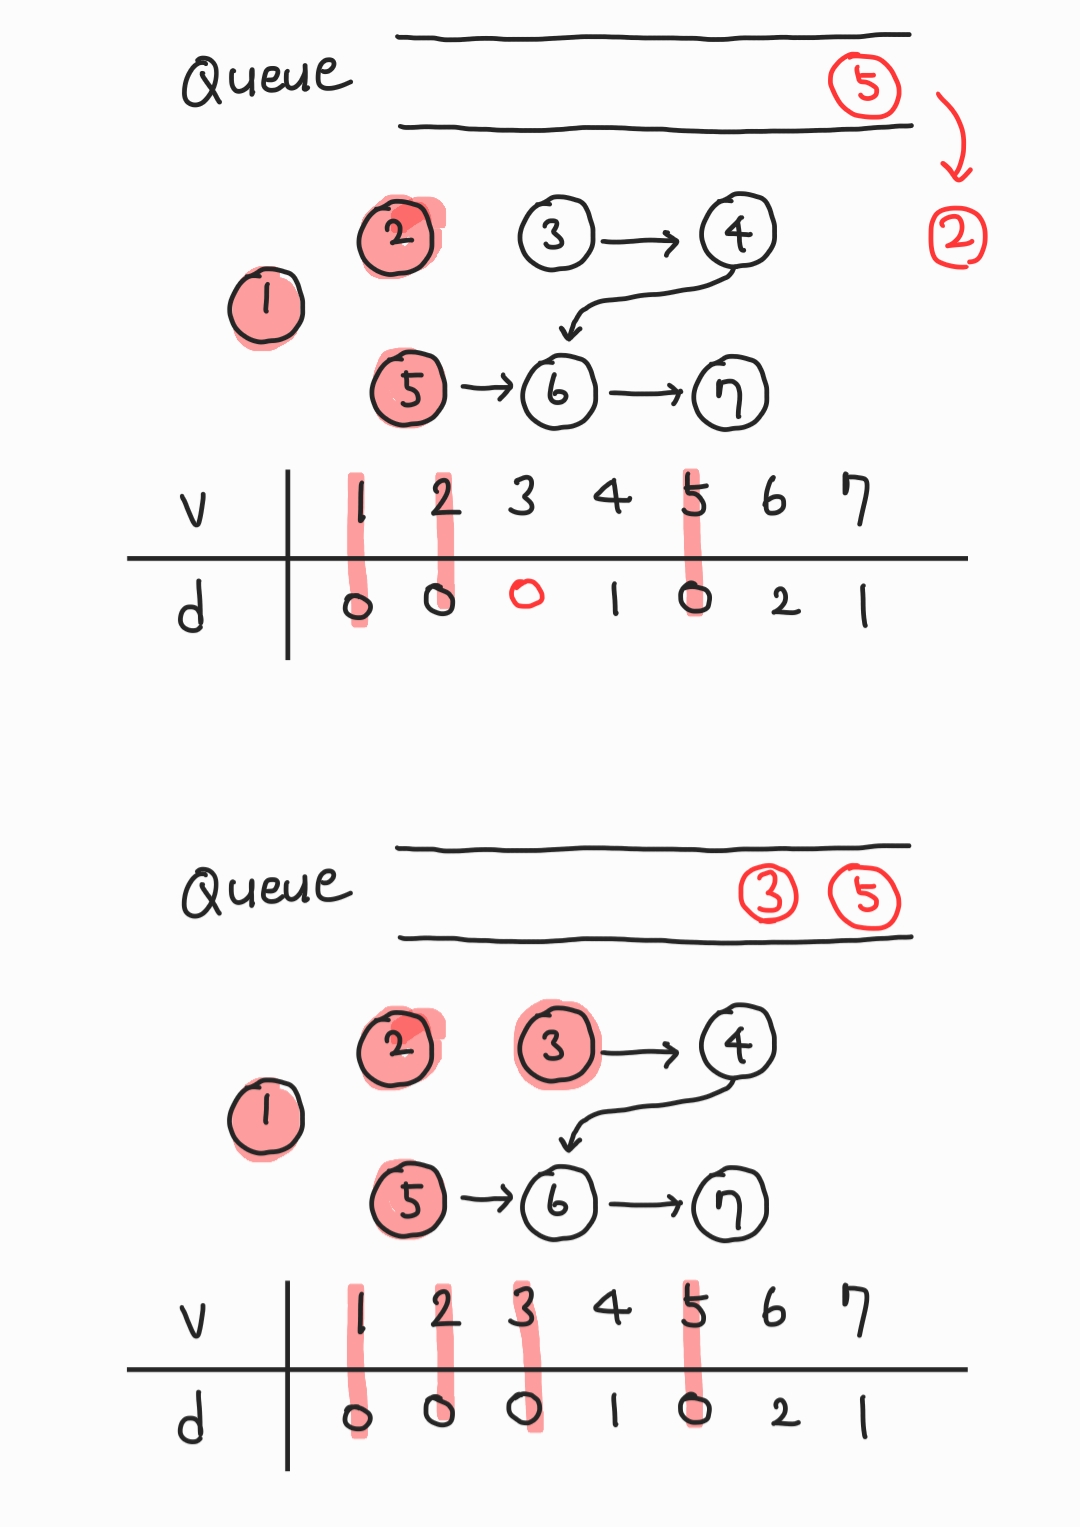 Queue 5
2 3 4 2
1
5 6 7
V 1 2 3 4 5 6 7
d 0 0 0 1 0 2 1
Queue 3 5
2 3 4
1
5 6 7
V 1 2 3 4 5 6 7
d 0 0 0 1 0 2 1